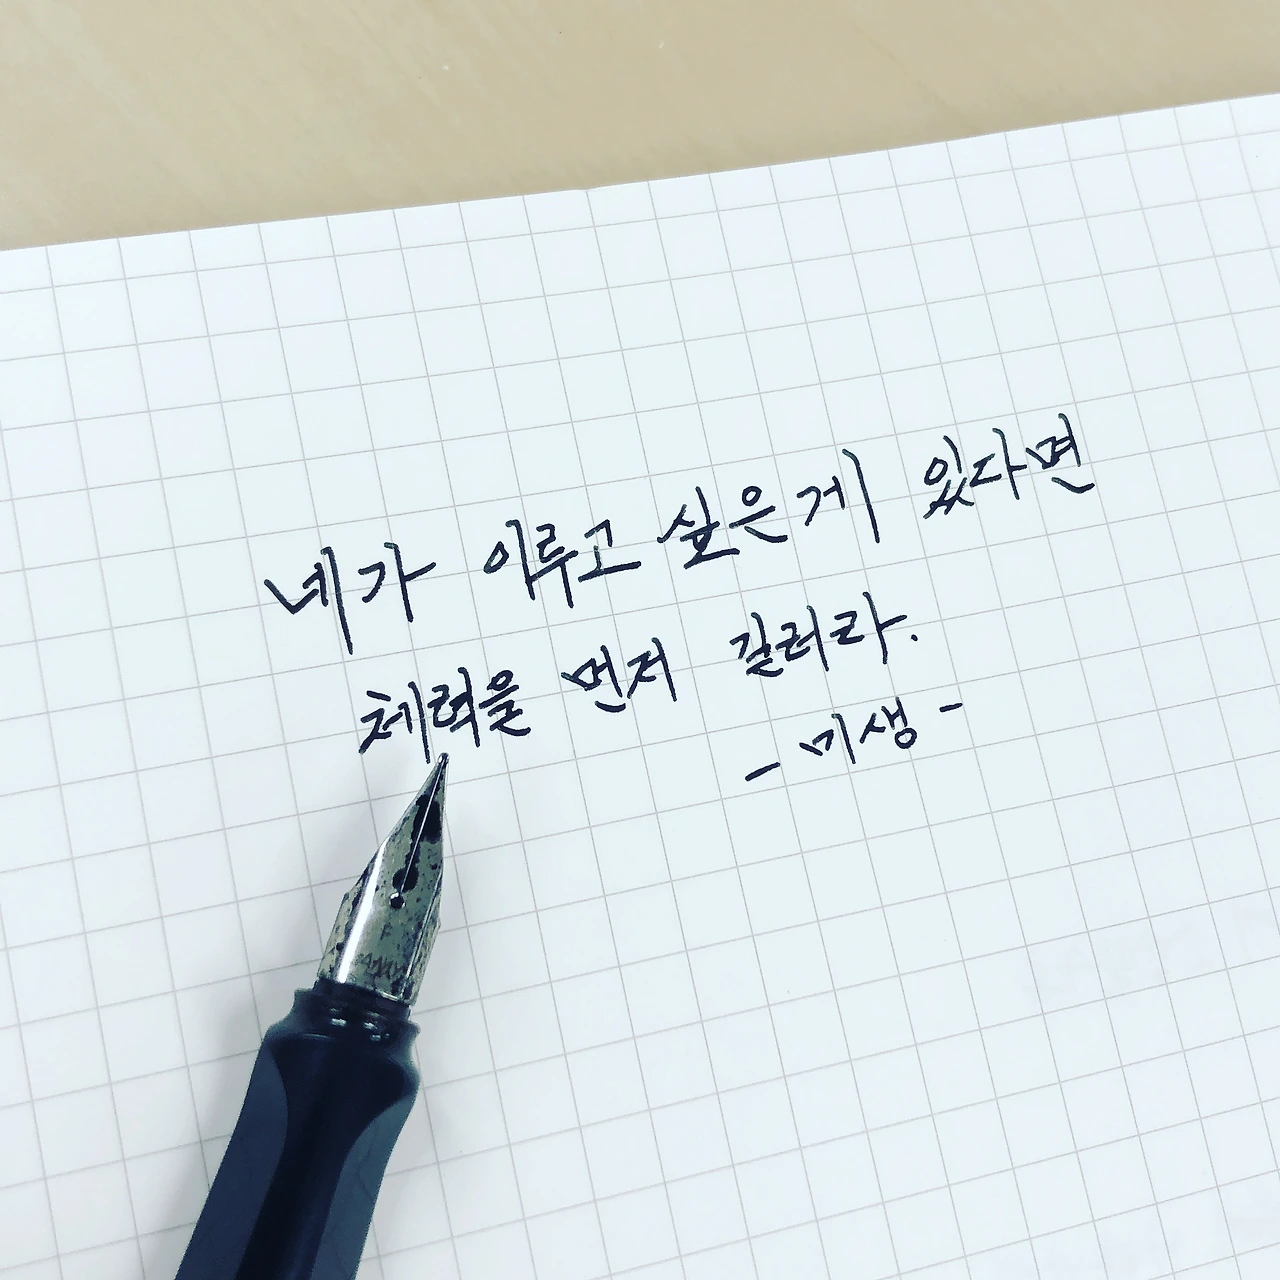 네가 이루고 싶은 게 있다면
체력을 먼저 길러라.
- 미생 -
F
LAMY